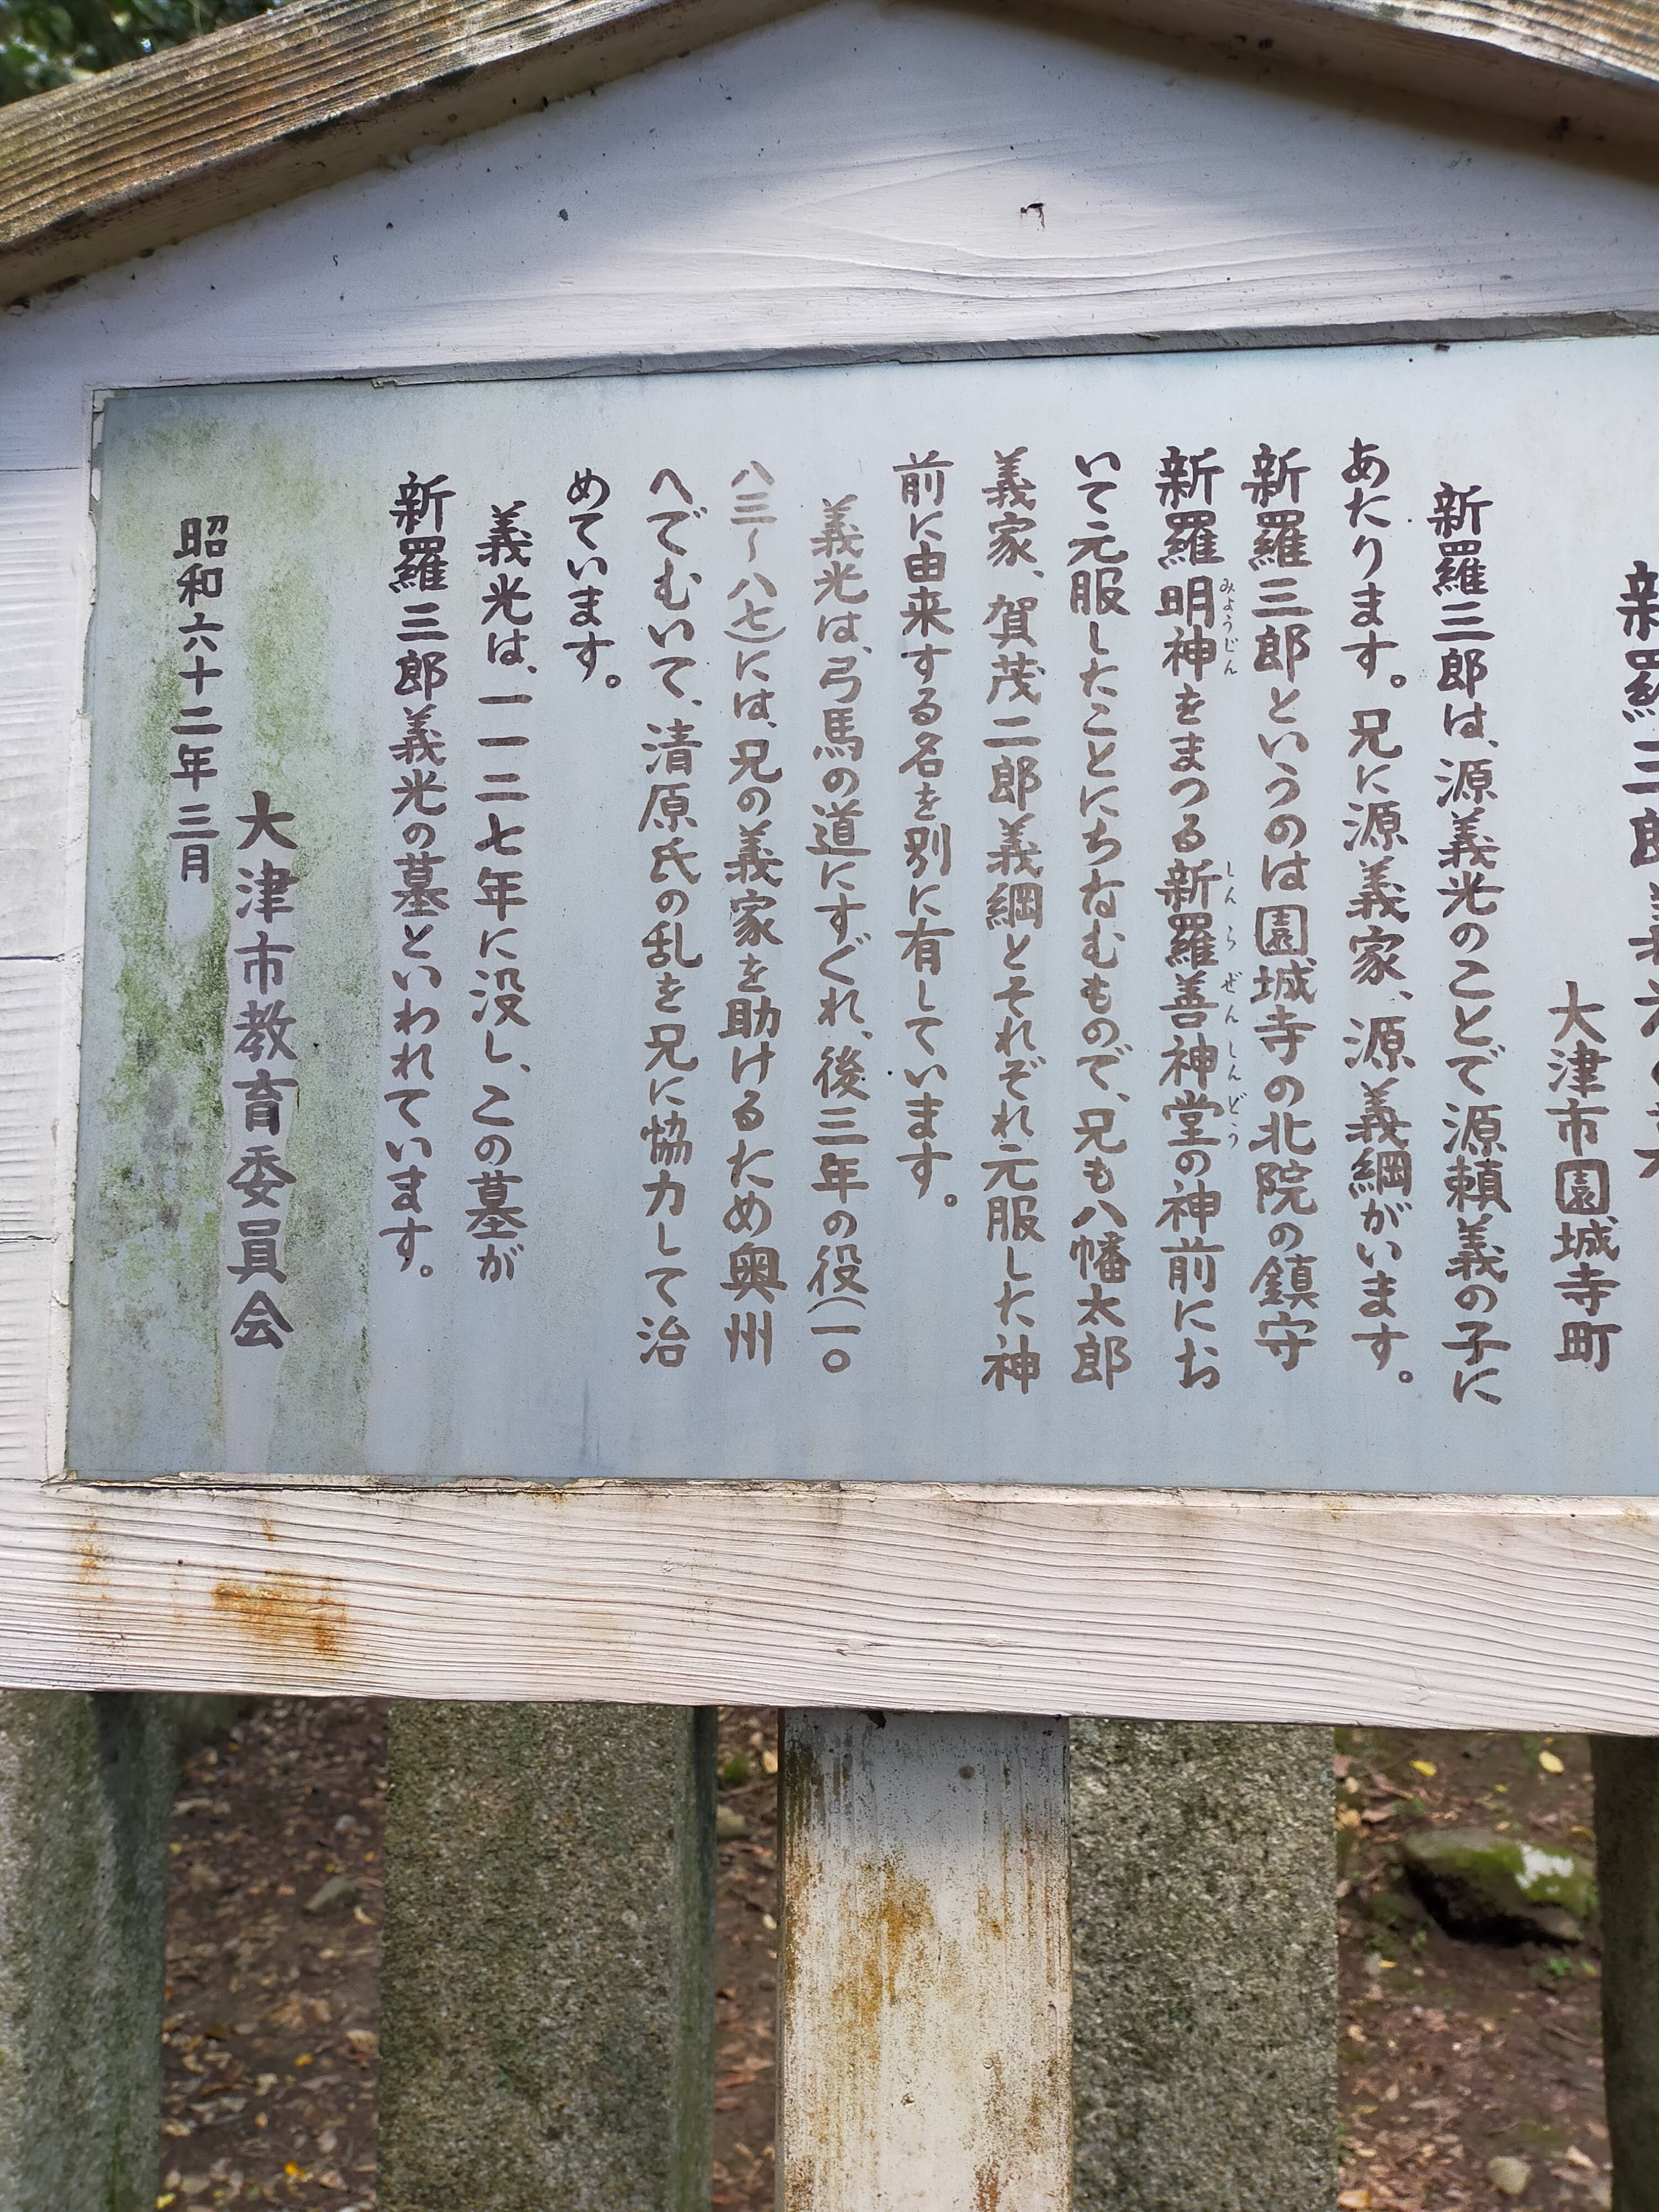 新羅三郎義光の墓
大津市園城寺町
新羅三郎は、源義光のことで源頼義の子に
あたります。兄に源義家、源義綱がいます。
新羅三郎というのは園城寺の北院の鎮守
新羅明神をまつる新羅善神堂の神前にお
みょうじん
しんらぜんしんどう
いて元服したことにちなむもので、兄も八幡太郎
義家、賀茂二郎義綱とそれぞれ元服した神
前に由来する名を別に有しています。
義光は、弓馬の道にすぐれ、後三年の役(一〇
八三〜八七)には、兄の義家を助けるため奥州
へでむいて、清原氏の乱を兄に恊力して治
めています。
義光は、一一二七年に没し、この墓が
新羅三郎義光の墓といわれています。
大津市教育委員会
昭和六十二年三月